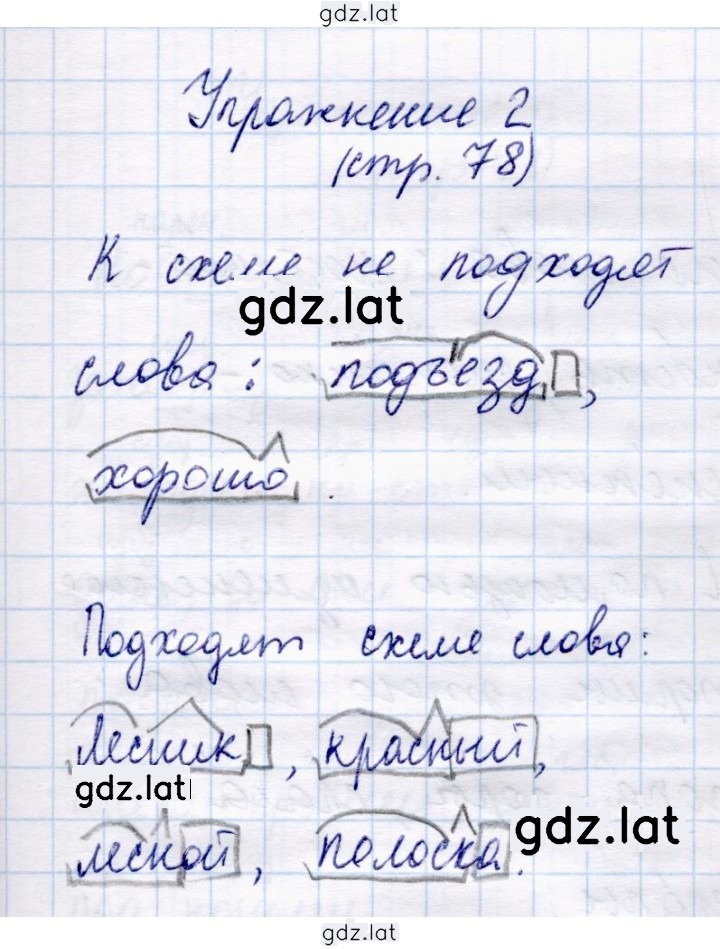 gdz.lat
Упражнение 2
(стр. 78)
К схеме не подходят
gdz.lat
слова: подъезд,
хорошо.
Подходят схеме слова:
лесник, красный,
gdz.lat
gdz.lat
лесной, полоска.
gdz.lat